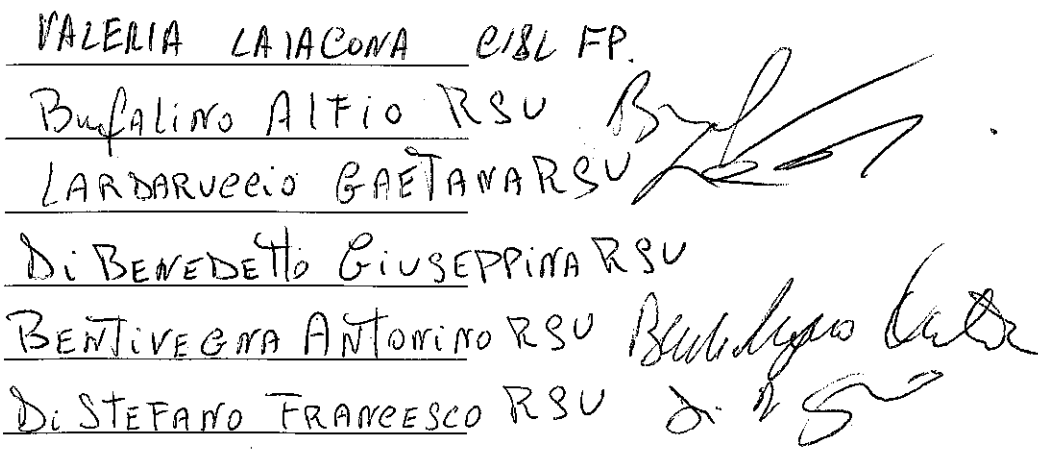 VALERIA LAIACONA CISL FP.
Bufalino Alfio RSU
LARDARUCCIO GAETANA RSU
Di BENEDETTO GIUSEPPINA RSU
BENTIVEGNA ANTONINO RSU
Di STEFANO FRANCESCO RSU